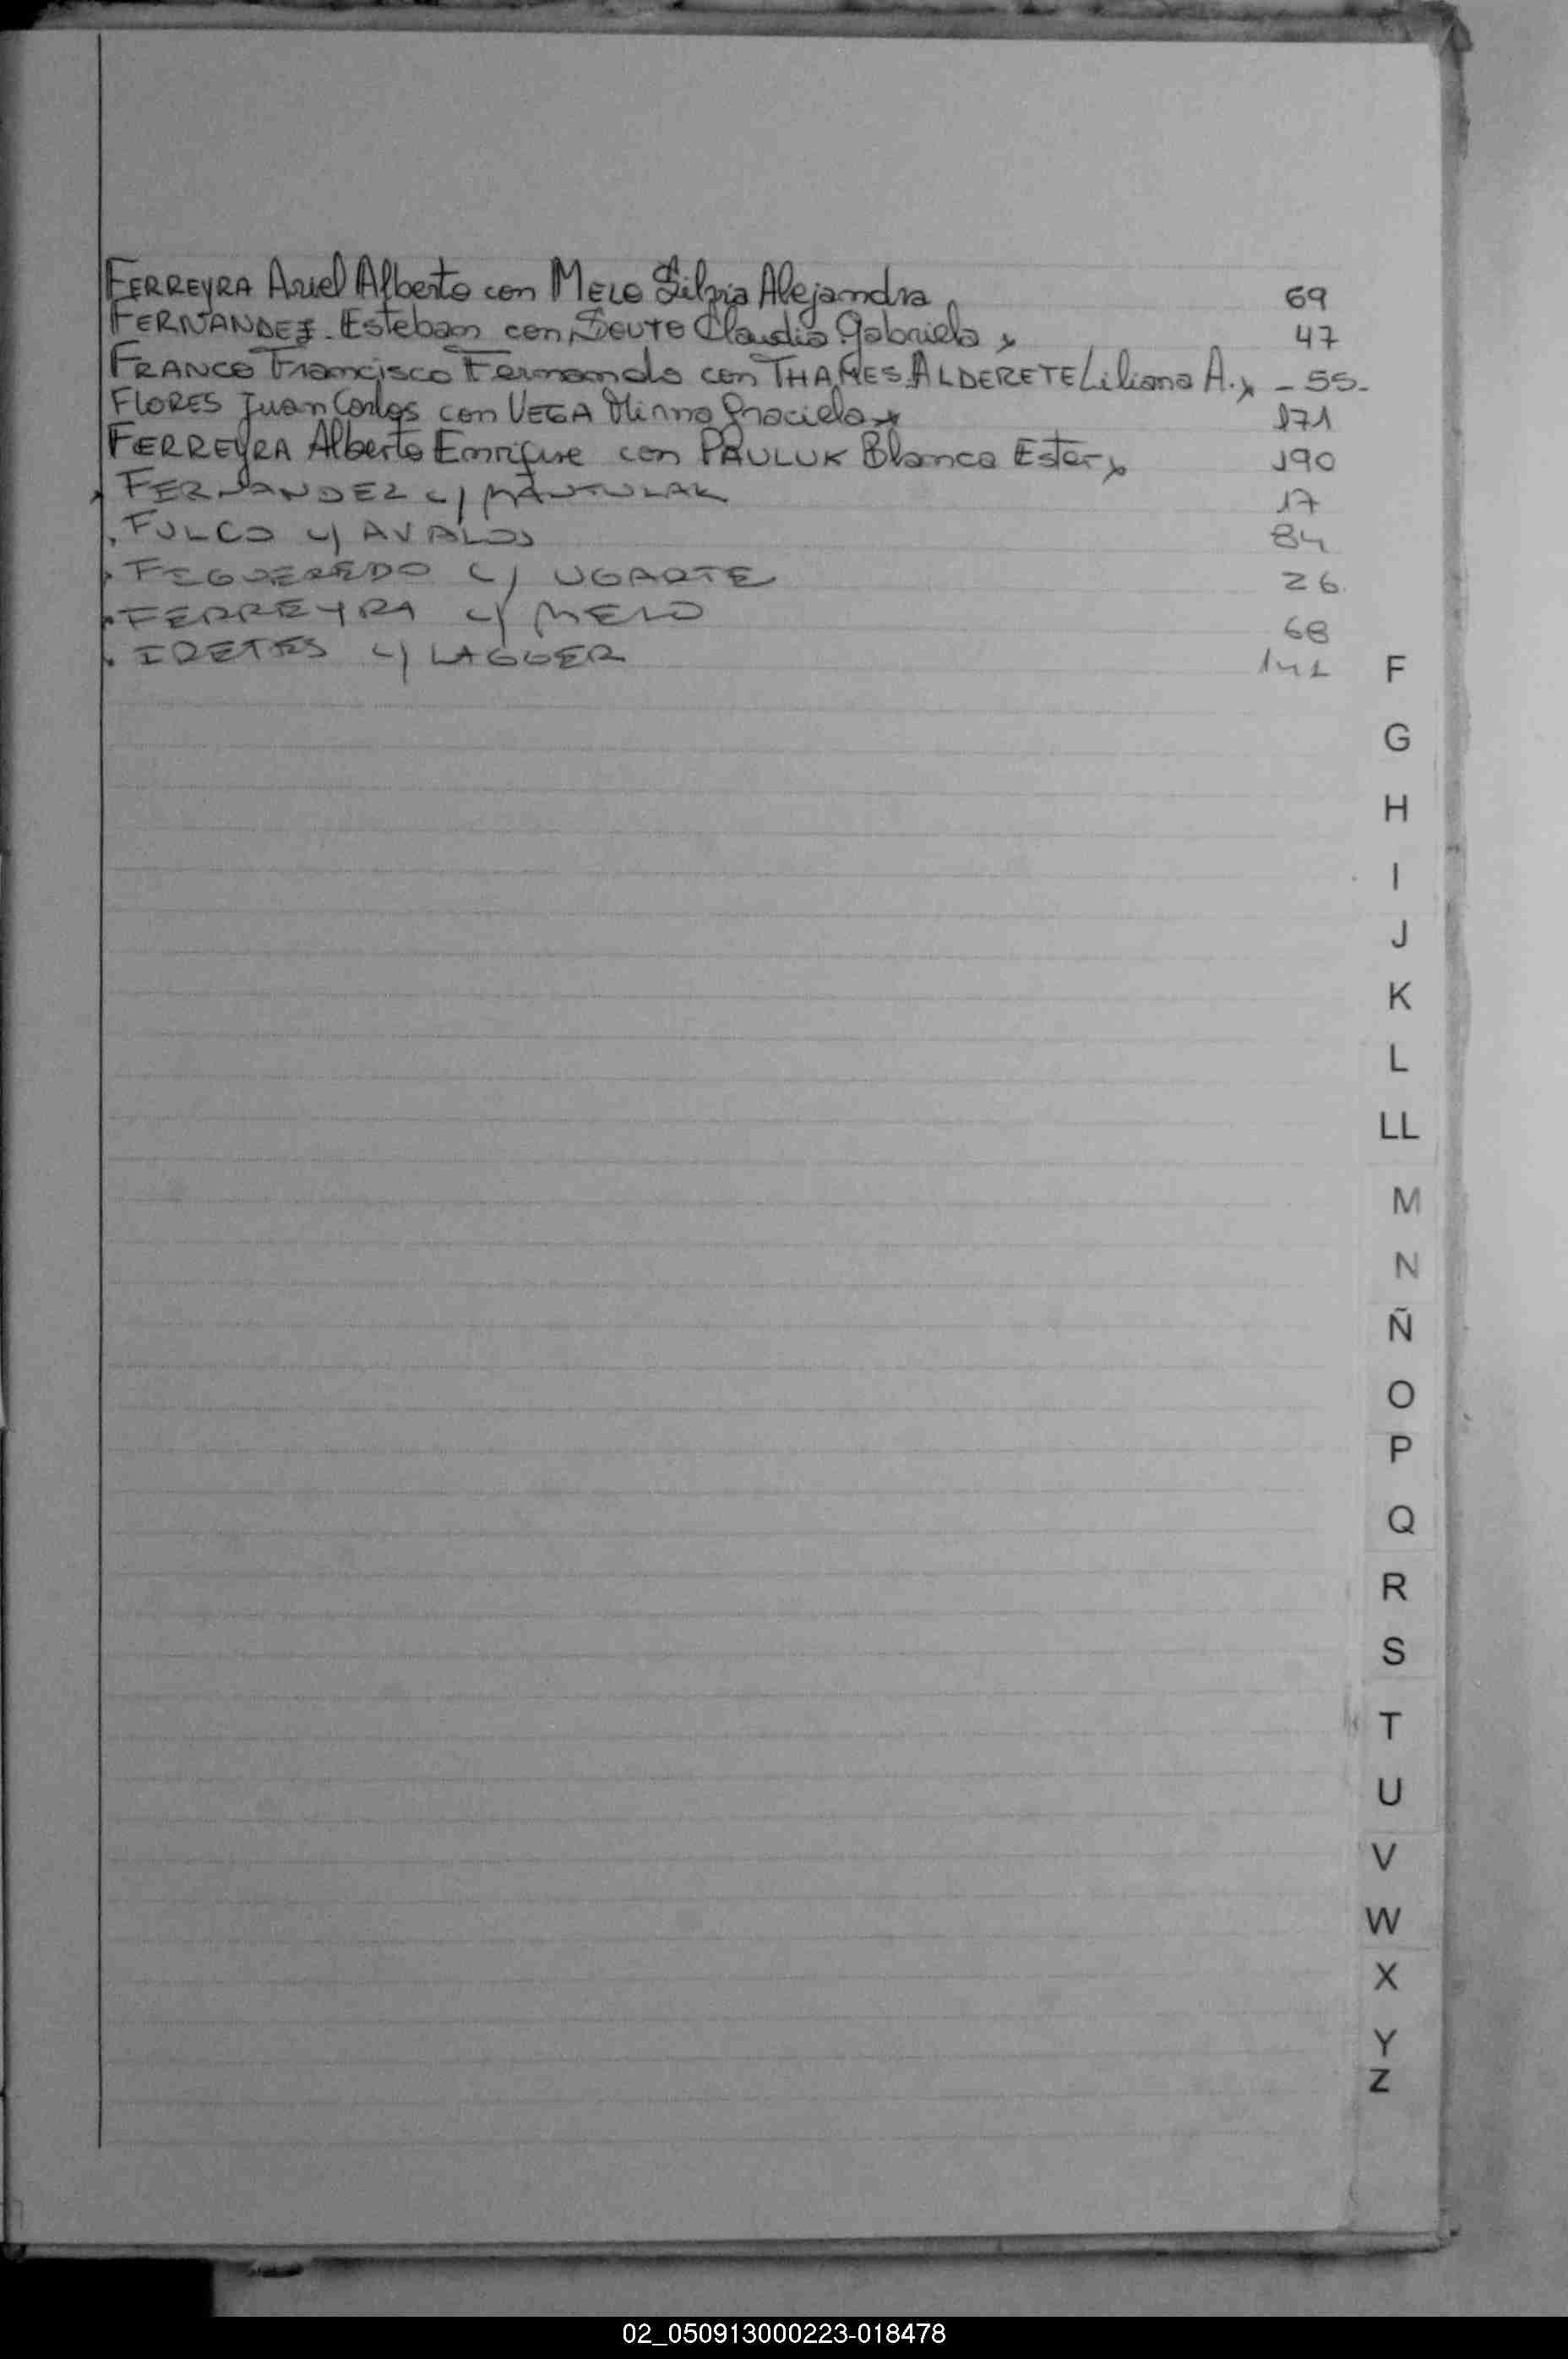 FERREYRA Ariel Alberto con MELO Silvia Alejandra 69
FERNANDEZ Esteban con Claudia Gabriela x 47
FRANCO Francisco Fernando con THAMES ALDERETE Liliana A. x - 55 -
FLORES Juan Carlos con VEGA Mirna Graciela x 171
FERREYRA Alberto Enrique con PAULUK Blanca Ester x 190
FERNANDEZ c/ 17
FULCO c/ AVALOS 84
FEGUEREDO c/ UGARTE 26
FERREYRA c/ MELO 68
c/ LAGGER
F
G
H
I
J
K
L
LL
M
N
Ñ
O
P
Q
R
S
T
U
V
W
X
Y
Z
02_050913000223-018478